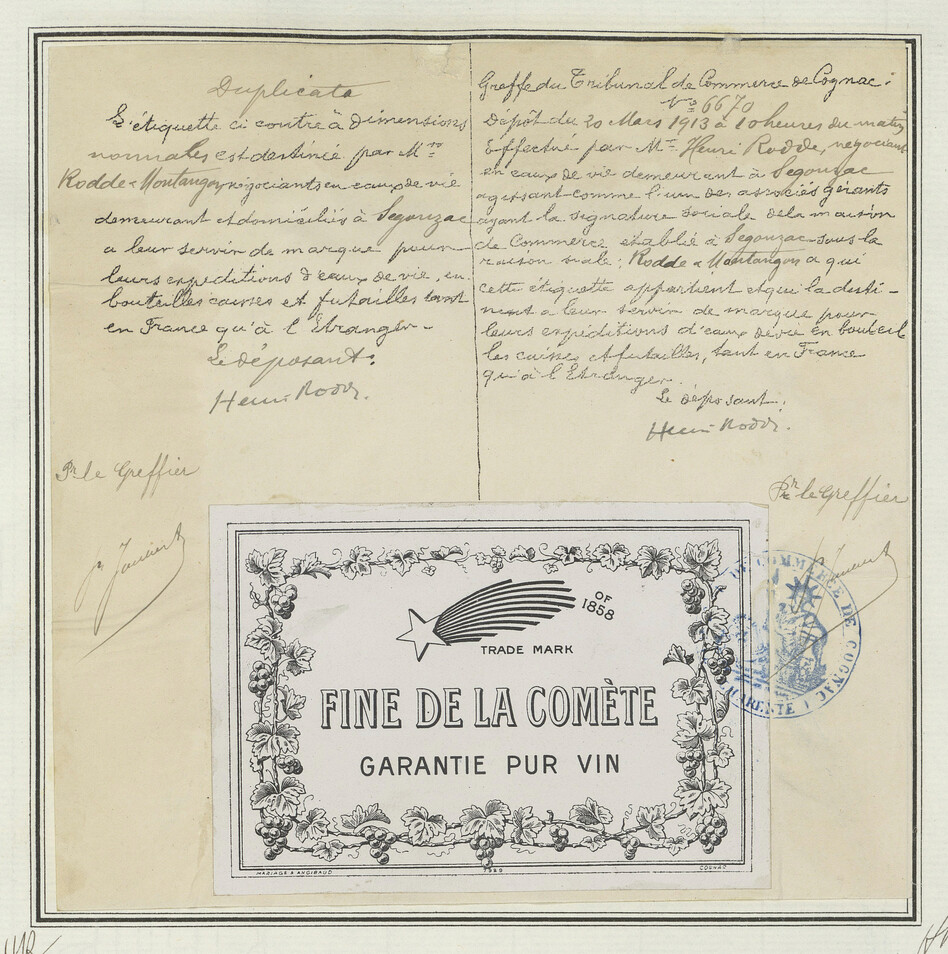 Duplicata
L'étiquette ci contre à dimensions
normales est destinée par Mrs
Rodde & Montangon négociants en eaux de vie
demeurant et domiciliés à Segonzac
a leur servir de marque pour
leurs expéditions d'eaux de vie, en
bouteilles caisses et futailles tant
en France qu'à l'Etranger-
Le déposant:
Henri Rodde.
Pr le Greffier
Greffe du Tribunal de Commerce de Cognac:
No 6670
Dépôt du 20 Mars 1913 à 10 heures du matin
Effectué par Mr Henri Rodde, négociant
en eaux de vie demeurant à Segonzac
agissant comme l'un des associés gérants
ayant la signature sociale de la maison
de Commerce établie à Segonzac sous la
raison sociale: Rodde & Montangon a qui
cette étiquette appartient et qui la desti-
nent a leur servir de marque pour
leurs expéditions d'eaux de vie en bouteil
les caisses et futailles, tant en France
qu'à l'Etranger.
Le déposant:
Henri Rodde.
Pr le Greffier
OF
1858
TRADE MARK
FINE DE LA COMÈTE
GARANTIE PUR VIN
MARIAGE & ANGIBAUD
COGNAC
DE COMMERCE DE COGNAC